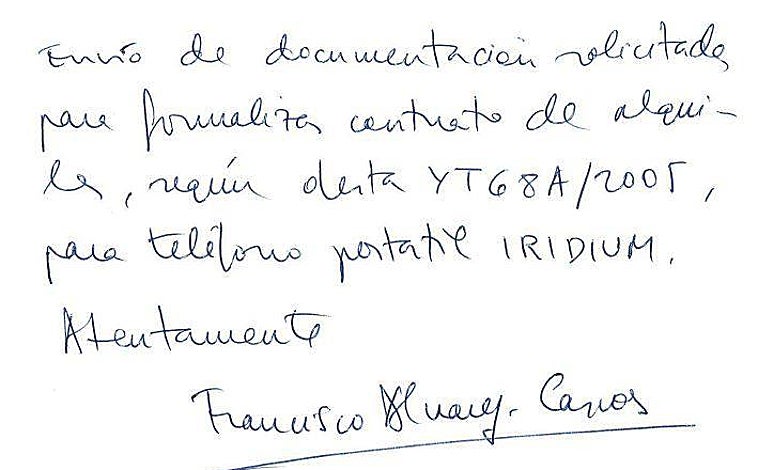 Envío de documentación solicitada
para formalizar contrato de alqui-
ler, según oferta YT68A/2005,
para teléfono portatil IRIDIUM.
Atentamente
Francisco